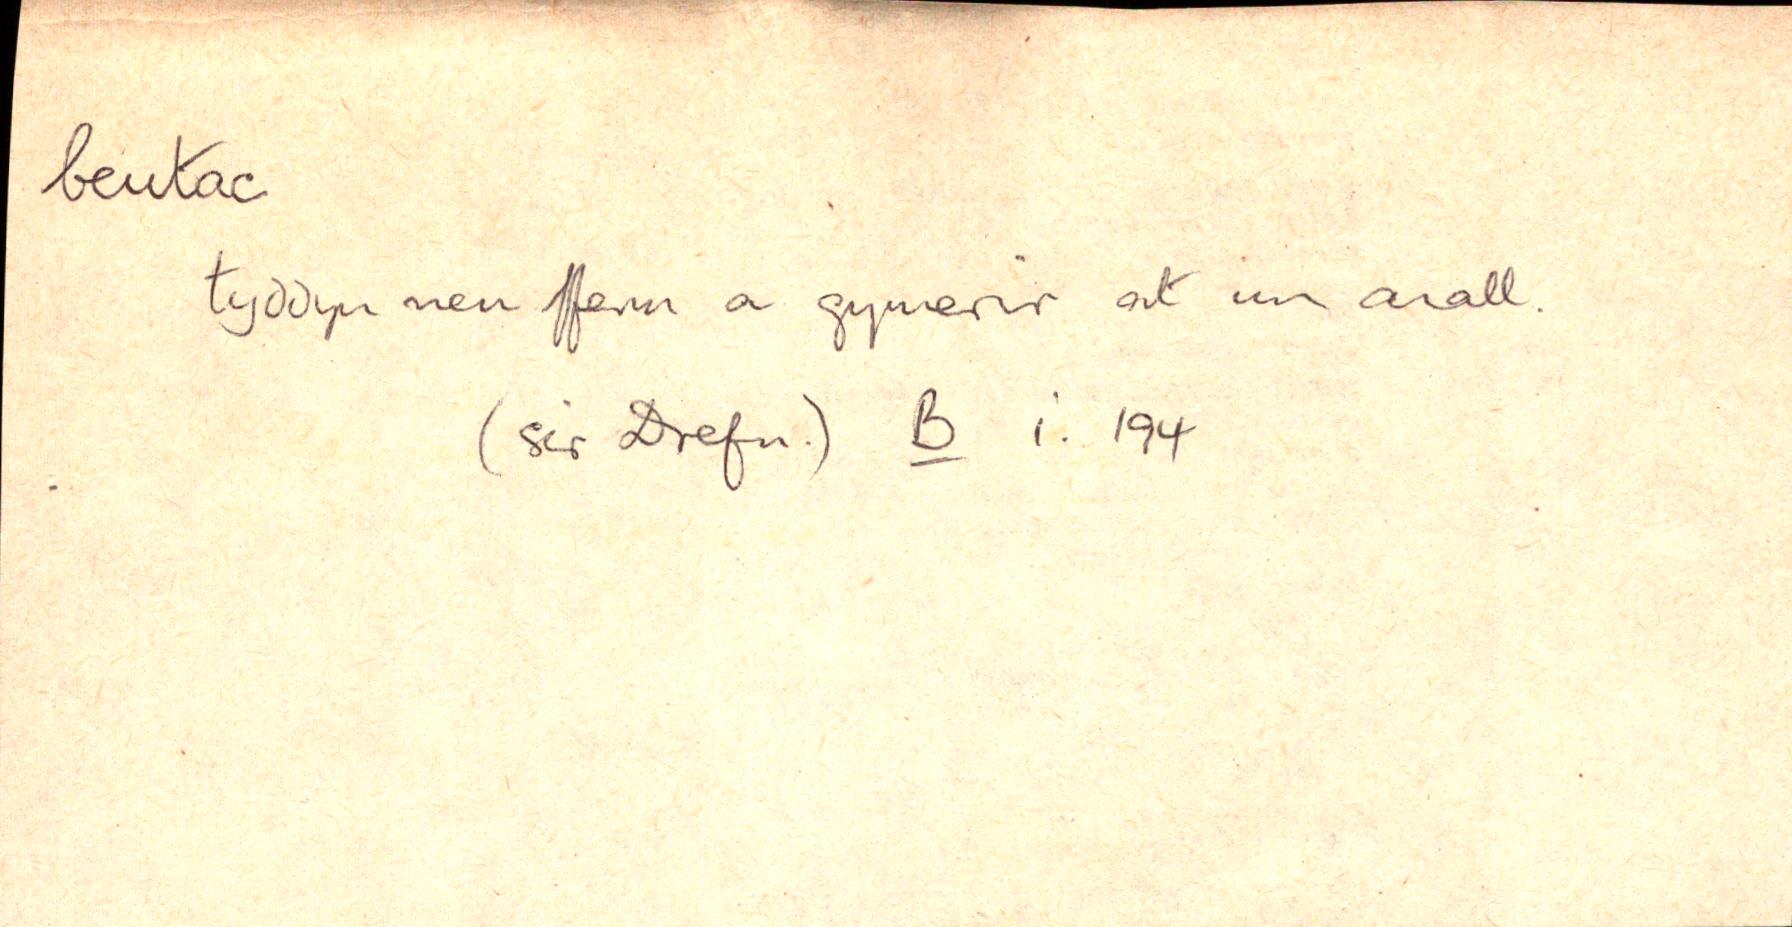 bentac
tyddyn neu fferm a gymerir at un arall.
(sir Drefn.) B i. 194